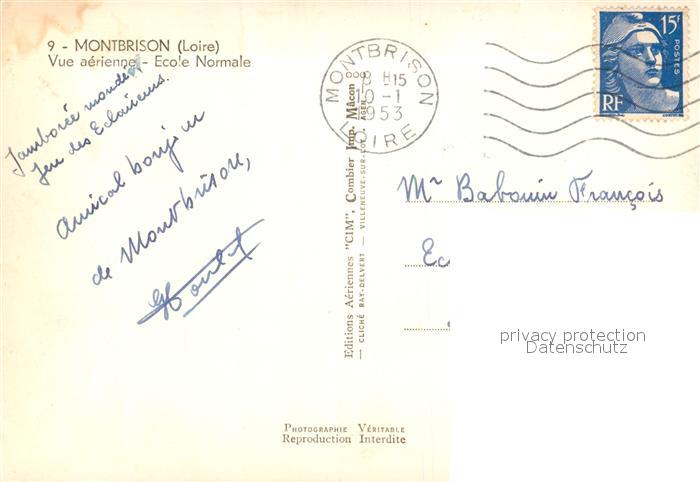 9 - MONTBRISON (Loire)
Vue aérienne - Ecole Normale
Jamborée
Jeu des Eclaireurs.
Amical bonjour
de Montbrison,
MONTBRISON
8 H 15
10 - 1
1953
LOIRE
15F
POSTES
RF
Editions Aériennes "CIM", Combier Imp. Mâcon
CLICHÉ RAY-DELVERT — VILLENEUVE-SUR-LOT, AGEN
Mr Babouin François
Ec
privacy protection
Datenschutz
PHOTOGRAPHIE VÉRITABLE
Reproduction Interdite